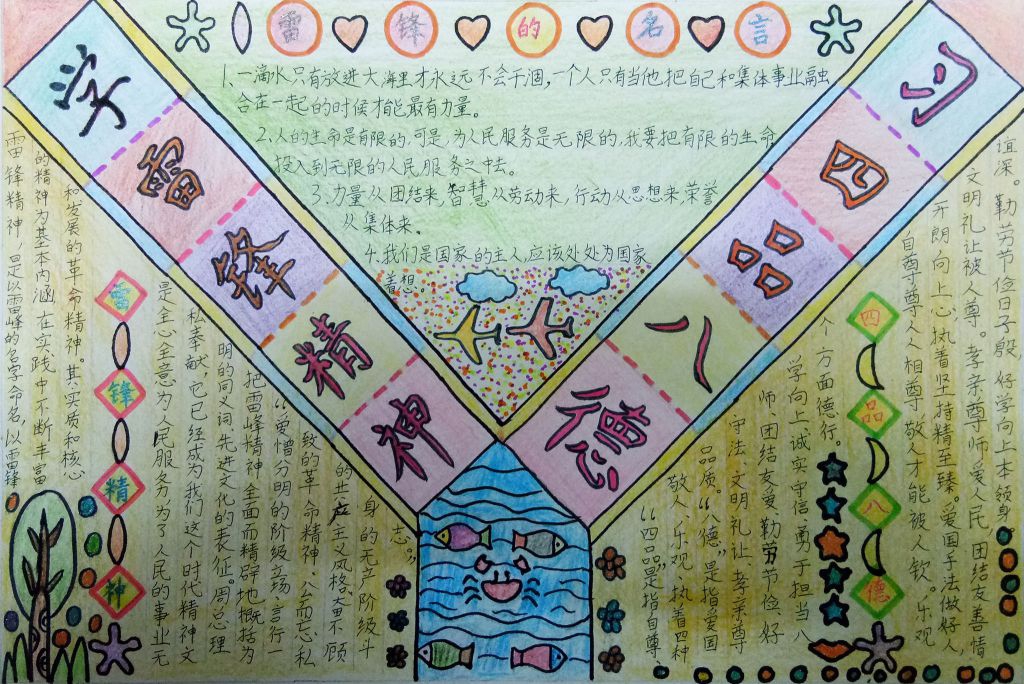 雷锋的名言
学雷锋精神
习四品八德
1、一滴水只有放进大海里才永远不会干涸，一个人只有当他把自己和集体事业融
合在一起的时候才能最有力量。
2、人的生命是有限的，可是，为人民服务是无限的，我要把有限的生命
投入到无限的人民服务之中去。
3、力量从团结来，智慧从劳动来，行动从思想来，荣誉
从集体来。
4、我们是国家的主人，应该处处为国家
着想。
雷锋精神，是以雷峰的名字命名，以雷锋
的精神为基本内涵，在实践中不断丰富
和发展的革命精神。其实质和核心
是全心全意为人民服务为了人民的事业无
私奉献，它已经成为我们这个时代精神文
明的同义词先进文化的表征。周总理
把雷峰精神全面而精辟地概括为
“爱憎分明的阶级立场、言行一
致的革命精神、公而忘私
的共产主义风格、奋不顾
身的无产阶级斗
志。”
雷锋精神
“四品”是指自尊、
敬人、乐观、执着四种
品质。“八德”是指爱国
守法、文明礼让、孝亲尊
师、团结友爱、勤劳节俭、好
学向上、诚实守信、勇于担当八
个方面德行。
四品八德
自尊尊人人相尊，敬人才能被人钦。乐观
开朗向上心，执着坚持精至臻。爱国手法做好人，
文明礼让被人尊。孝亲尊师爱人民，团结友善情
谊深。勤劳节俭日子殷，好学向上本领身。